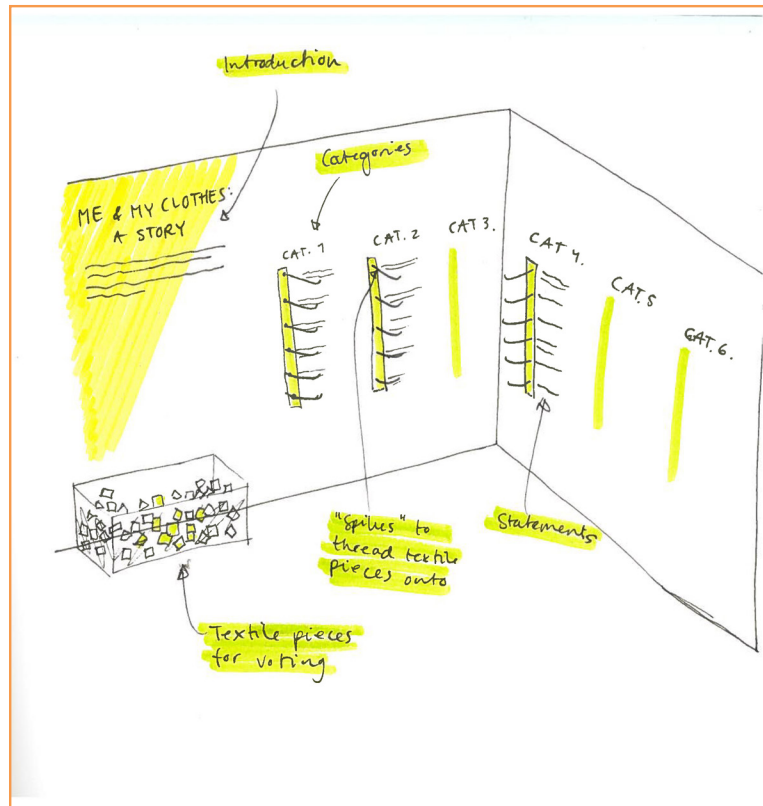 Introduction
Categories
ME & MY CLOTHES:
A STORY
CAT. 1
CAT. 2
CAT 3.
CAT 4.
CAT.5
CAT.6.
"Spikes" to
thread textile
pieces onto
Statements
Textile pieces
for voting